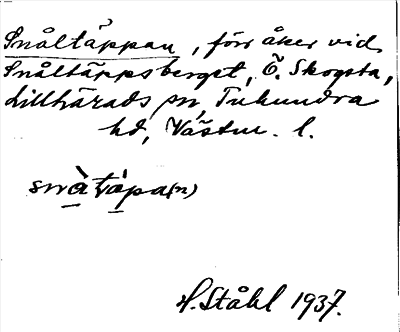 Snåltäppan, förr åker vid
Snåltäppsberget, Ö. Skogsta,
Lillhärads sn, Tuhundra
hd, Västm. l.
snå̀tápa(n)
H. Ståhl 1937.